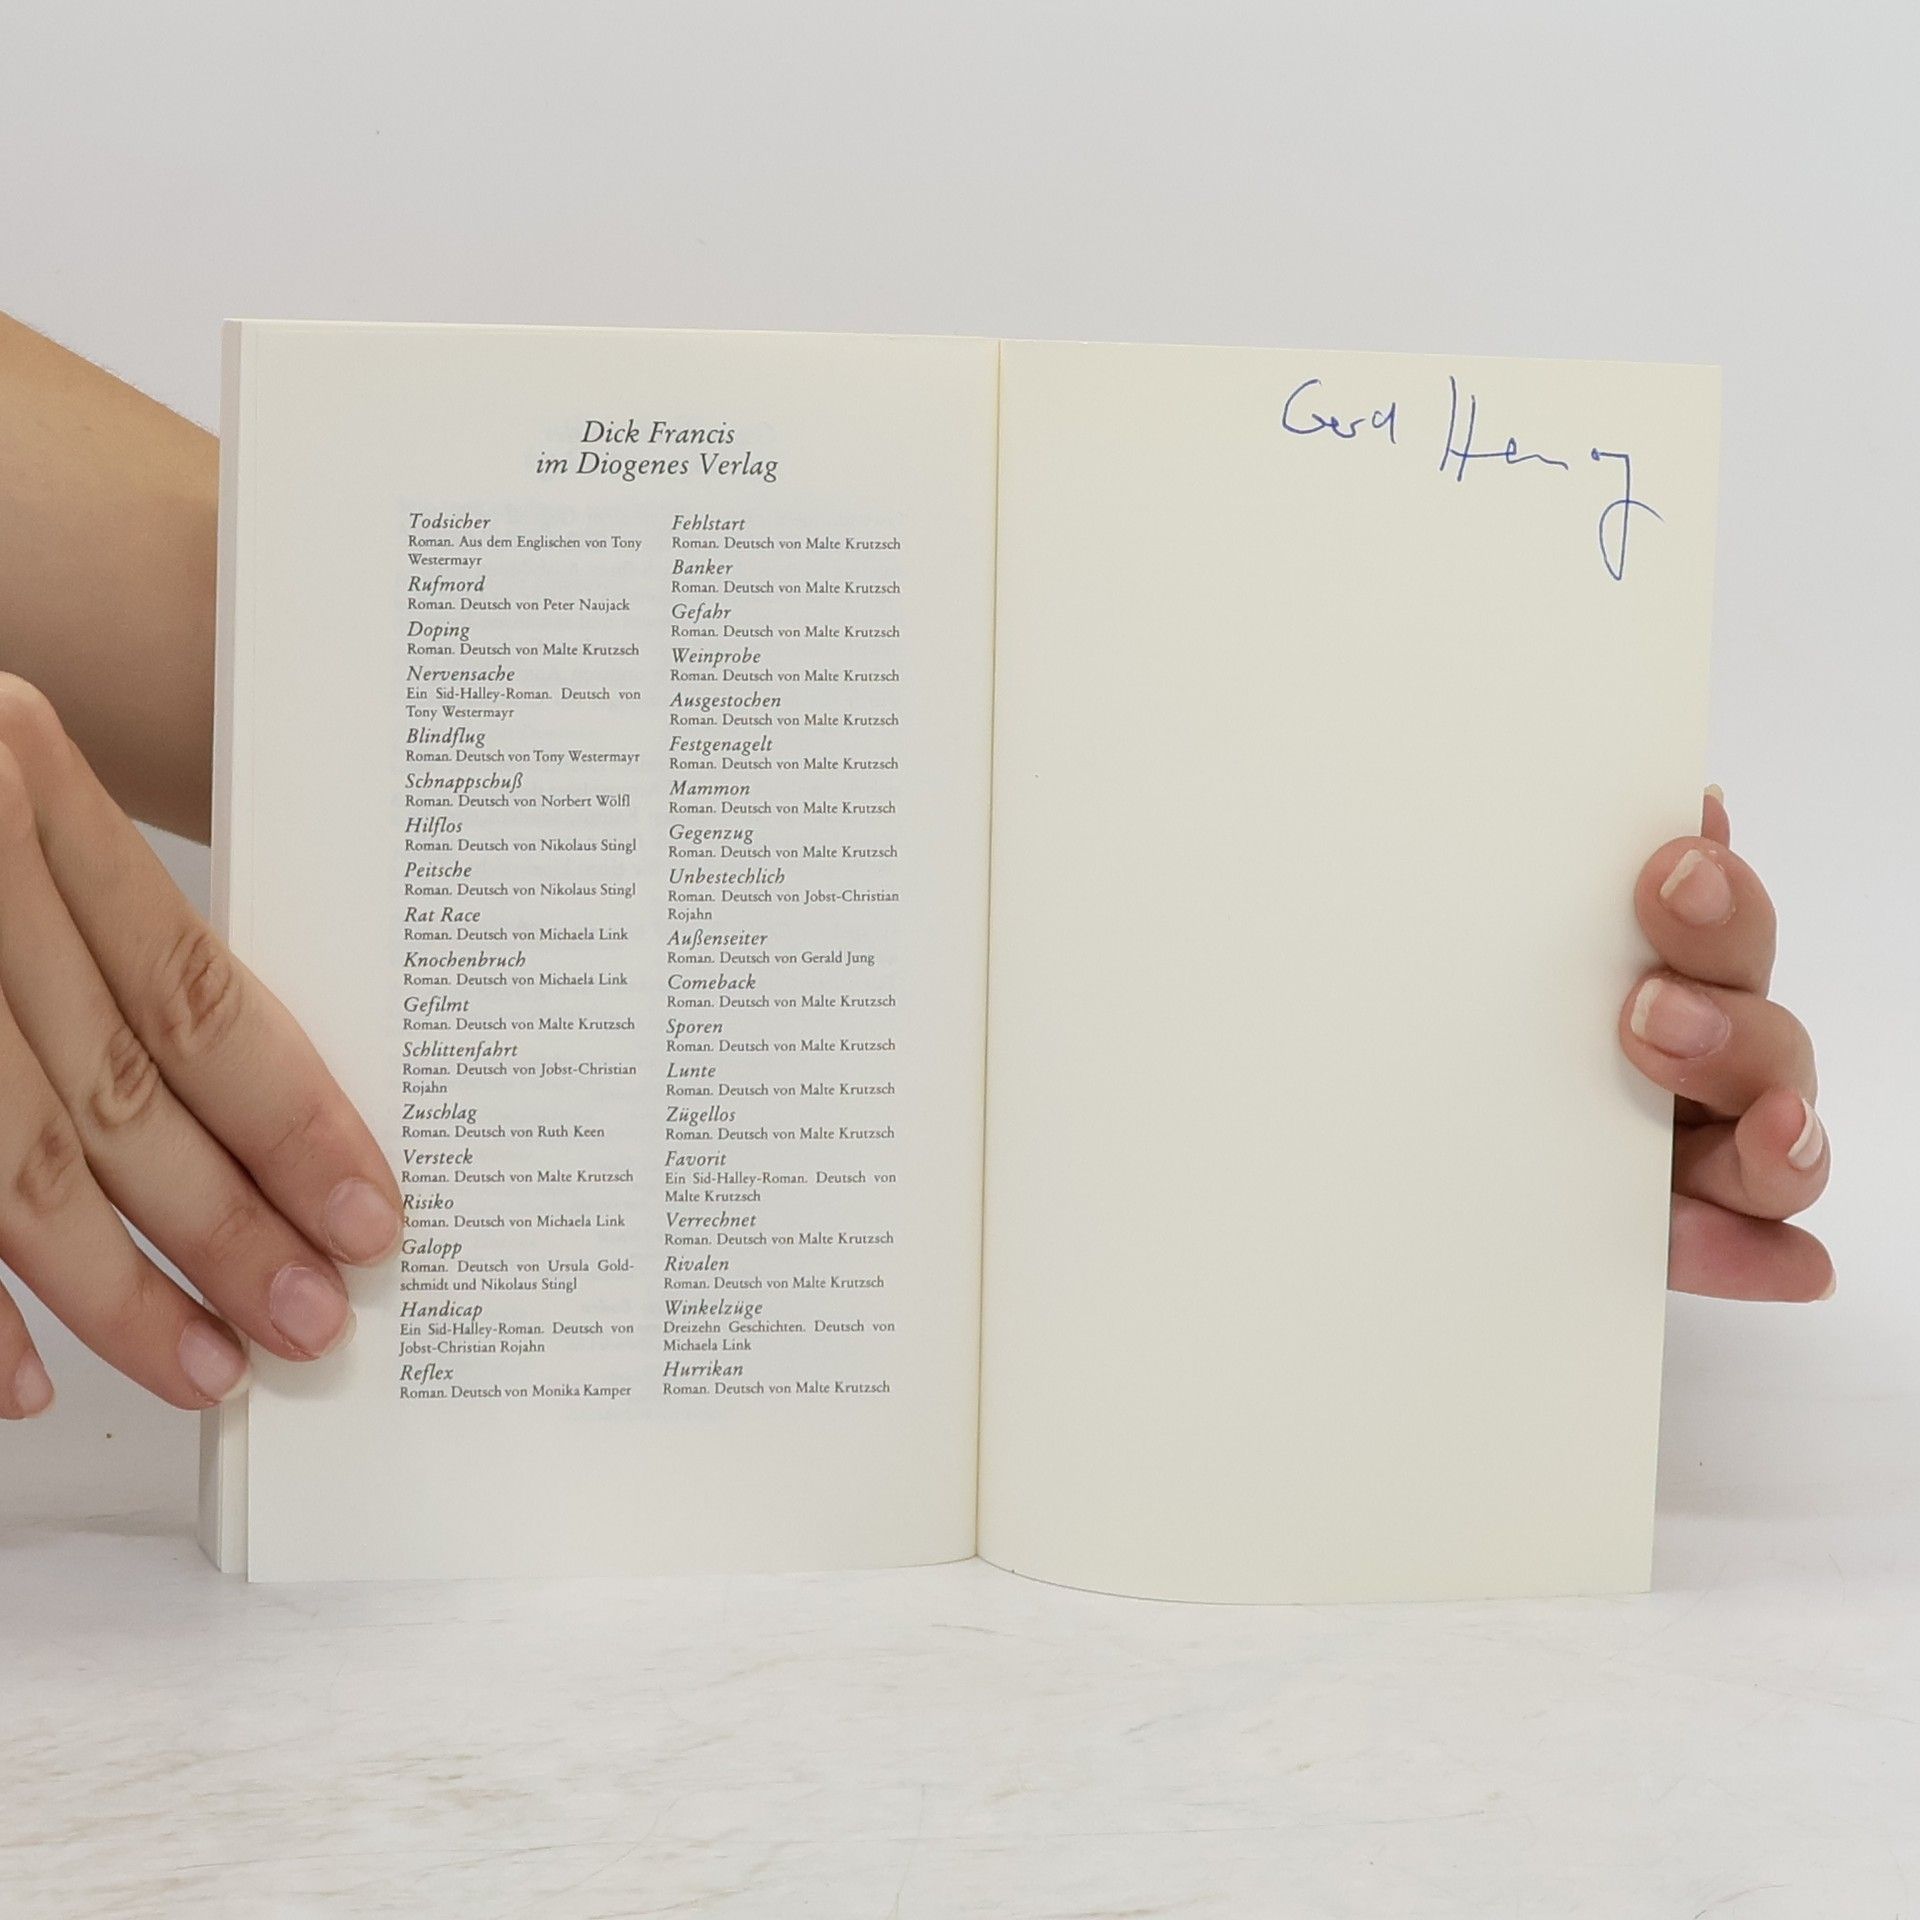 Dick Francis
im Diogenes Verlag
Todsicher
Roman. Aus dem Englischen von Tony
Westermayr
Rufmord
Roman. Deutsch von Peter Naujack
Doping
Roman. Deutsch von Malte Krutzsch
Nervensache
Ein Sid-Halley-Roman. Deutsch von
Tony Westermayr
Blindflug
Roman. Deutsch von Tony Westermayr
Schnappschuß
Roman. Deutsch von Norbert Wölfl
Hilflos
Roman. Deutsch von Nikolaus Stingl
Peitsche
Roman. Deutsch von Nikolaus Stingl
Rat Race
Roman. Deutsch von Michaela Link
Knochenbruch
Roman. Deutsch von Michaela Link
Gefilmt
Roman. Deutsch von Malte Krutzsch
Schlittenfahrt
Roman. Deutsch von Jobst-Christian
Rojahn
Zuschlag
Roman. Deutsch von Ruth Keen
Versteck
Roman. Deutsch von Malte Krutzsch
Risiko
Roman. Deutsch von Michaela Link
Galopp
Roman. Deutsch von Ursula Gold-
schmidt und Nikolaus Stingl
Handicap
Ein Sid-Halley-Roman. Deutsch von
Jobst-Christian Rojahn
Reflex
Roman. Deutsch von Monika Kamper
Fehlstart
Roman. Deutsch von Malte Krutzsch
Banker
Roman. Deutsch von Malte Krutzsch
Gefahr
Roman. Deutsch von Malte Krutzsch
Weinprobe
Roman. Deutsch von Malte Krutzsch
Ausgestochen
Roman. Deutsch von Malte Krutzsch
Festgenagelt
Roman. Deutsch von Malte Krutzsch
Mammon
Roman. Deutsch von Malte Krutzsch
Gegenzug
Roman. Deutsch von Malte Krutzsch
Unbestechlich
Roman. Deutsch von Jobst-Christian
Rojahn
Außenseiter
Roman. Deutsch von Gerald Jung
Comeback
Roman. Deutsch von Malte Krutzsch
Sporen
Roman. Deutsch von Malte Krutzsch
Lunte
Roman. Deutsch von Malte Krutzsch
Zügellos
Roman. Deutsch von Malte Krutzsch
Favorit
Ein Sid-Halley-Roman. Deutsch von
Malte Krutzsch
Verrechnet
Roman. Deutsch von Malte Krutzsch
Rivalen
Roman. Deutsch von Malte Krutzsch
Winkelzüge
Dreizehn Geschichten. Deutsch von
Michaela Link
Hurrikan
Roman. Deutsch von Malte Krutzsch
Gerd